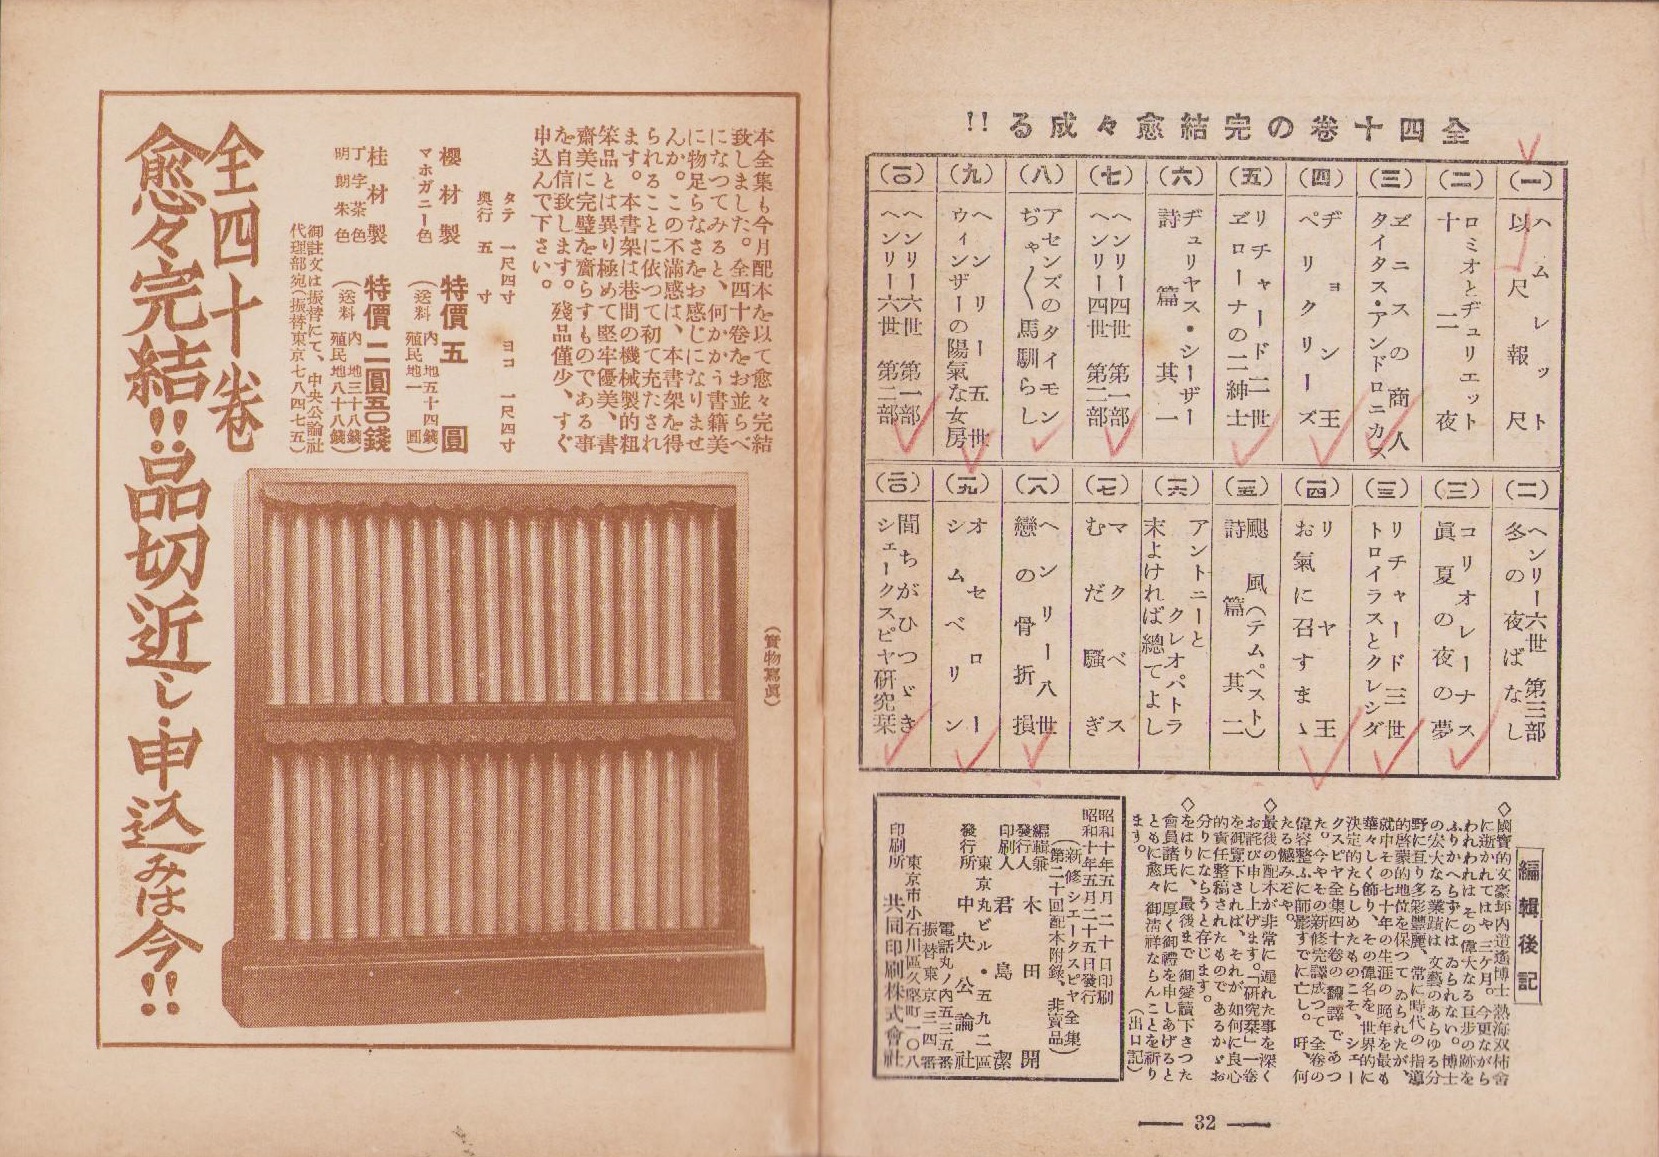 全四十卷の完結愈々成る!!
(一)
ハムレット
以尺報尺
(二)
ロミオとヂュリエット
十二夜
(三)
ヱニスの商人
タイタス・アンドロニカス
(四)
ヂョン王
ペリクリーズ
(五)
リチャード二世
ヱローナの二紳士
(六)
ヂュリヤス・シーザー
詩篇其一
(七)
ヘンリー四世 第一部
ヘンリー四世 第二部
(八)
アセンズのタイモン
ぢゃ〳〵馬馴らし
(九)
ヘンリー五世
ウィンザーの陽氣な女房
(一〇)
ヘンリー六世 第一部
ヘンリー六世 第二部
(一一)
ヘンリー六世 第三部
冬の夜ばなし
(一二)
コリオレーナス
眞夏の夜の夢
(一三)
リチャード三世
トロイラスとクレシダ
(一四)
リヤ王
お氣に召すまゝ
(一五)
颶風(テムペスト)
詩篇其二
(一六)
アントニーと
クレオパトラ
末よければ總てよし
(一七)
マクベス
むだ騷ぎ
(一八)
ヘンリー八世
戀の骨折損
(一九)
オセロー
シムベリン
(二〇)
間ちがひつゞき
シェークスピヤ研究栞
編輯後記
◇國寶的文豪坪内逍遙博士 熱海双柿舍
に逝かれてはや三ヶ月。今更ながら
われわれは その偉大なる巨步の跡を
ふりかへらずには ゐられない。博士
の宏大なる業蹟は 文藝のあらゆる分
野に亙り多彩豐麗、常に時代の指導
的啓蒙的地位を保つて ゐられたが、
就中その七十年の生涯の 晩年を最も
華々しく飾り、その偉名を 世界的に
決定的たらしめたものこそ、シェー
クスピヤ全集四十卷の 飜譯であつ
た。今やその新修完譯成つて 全卷の
偉容整ふに師影すでに亡し。吁、何
たる憾みぞや。
◇最後の配本が非常に 遲れた事を深く
お詫び申し上げます。「研究栞」一卷
を御覽下されば、それが如何に良心
的責任整稿されたもので あるかゞお
分りにならうと存じます。
◇をはりに、最後まで 御愛讀下さつた
會員諸氏に 厚く御禮を申しあげると
ともに愈々 御淸祥ならんことを祈り
ます。
(出口記)
昭和十年五月二十日印刷
昭和十年五月二十五日發行
(新修シエークスピヤ全集)
(第二十回配本附錄、非賣品)
編輯兼
發行人 木田開
印刷人 君島潔
東京丸ビル・五九二區
發行所 中央公論社
電話丸ノ内五三五番
振替東京三四番
東京市小石川區久堅町一〇八
印刷所 共同印刷株式會社
32
本全集も今月配本を以て愈々完結
致しました。全四十卷をお並らべ
になつてみると、何かかう書籍美
に物足らなさをお感じになりませ
んか。この不滿感は、本書架を得
られることに依つて初て充たされ
ます。本書架は巷間の機械製的粗
笨品とは異り極めて堅牢優美、書
齋美に完璧を齎らすものである事
を自信致します。殘品僅少、すぐ
申込んで下さい。
タテ 一尺四寸 ヨコ 一尺四寸
奧行 五寸
櫻材製 特價 五圓
マホガニー色
(送料 内地五十四錢
殖民地一圓)
桂材製 特價 二圓五〇錢
丁字茶色
明朗朱色
(送料 内地三十八錢
殖民地八十八錢)
御註文は振替にて、中央公論社
代理部宛(振替東京七八四七五)
(實物寫眞)
全四十卷
愈々完結!!品切近し・申込みは今!!